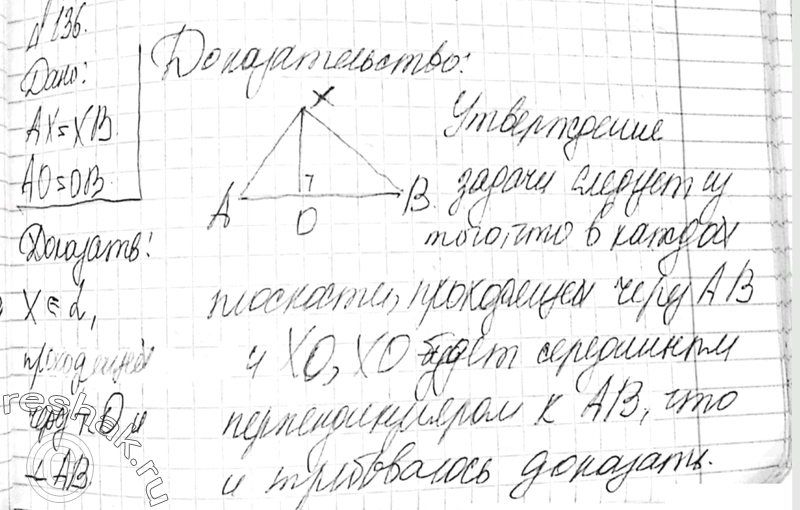 № 136.
Дано:
AX = XB.
AO = OB
Доказать:
X ∈ α,
проходящей
через т. O и
⊥ AB
Доказательство:
X
A
O
B
Утверждение
задачи следует из
того, что в каждой
плоскости, проходящей через AB
и XO, XO будет серединным
перпендикуляром к AB, что
и требовалось доказать.
reshak.ru